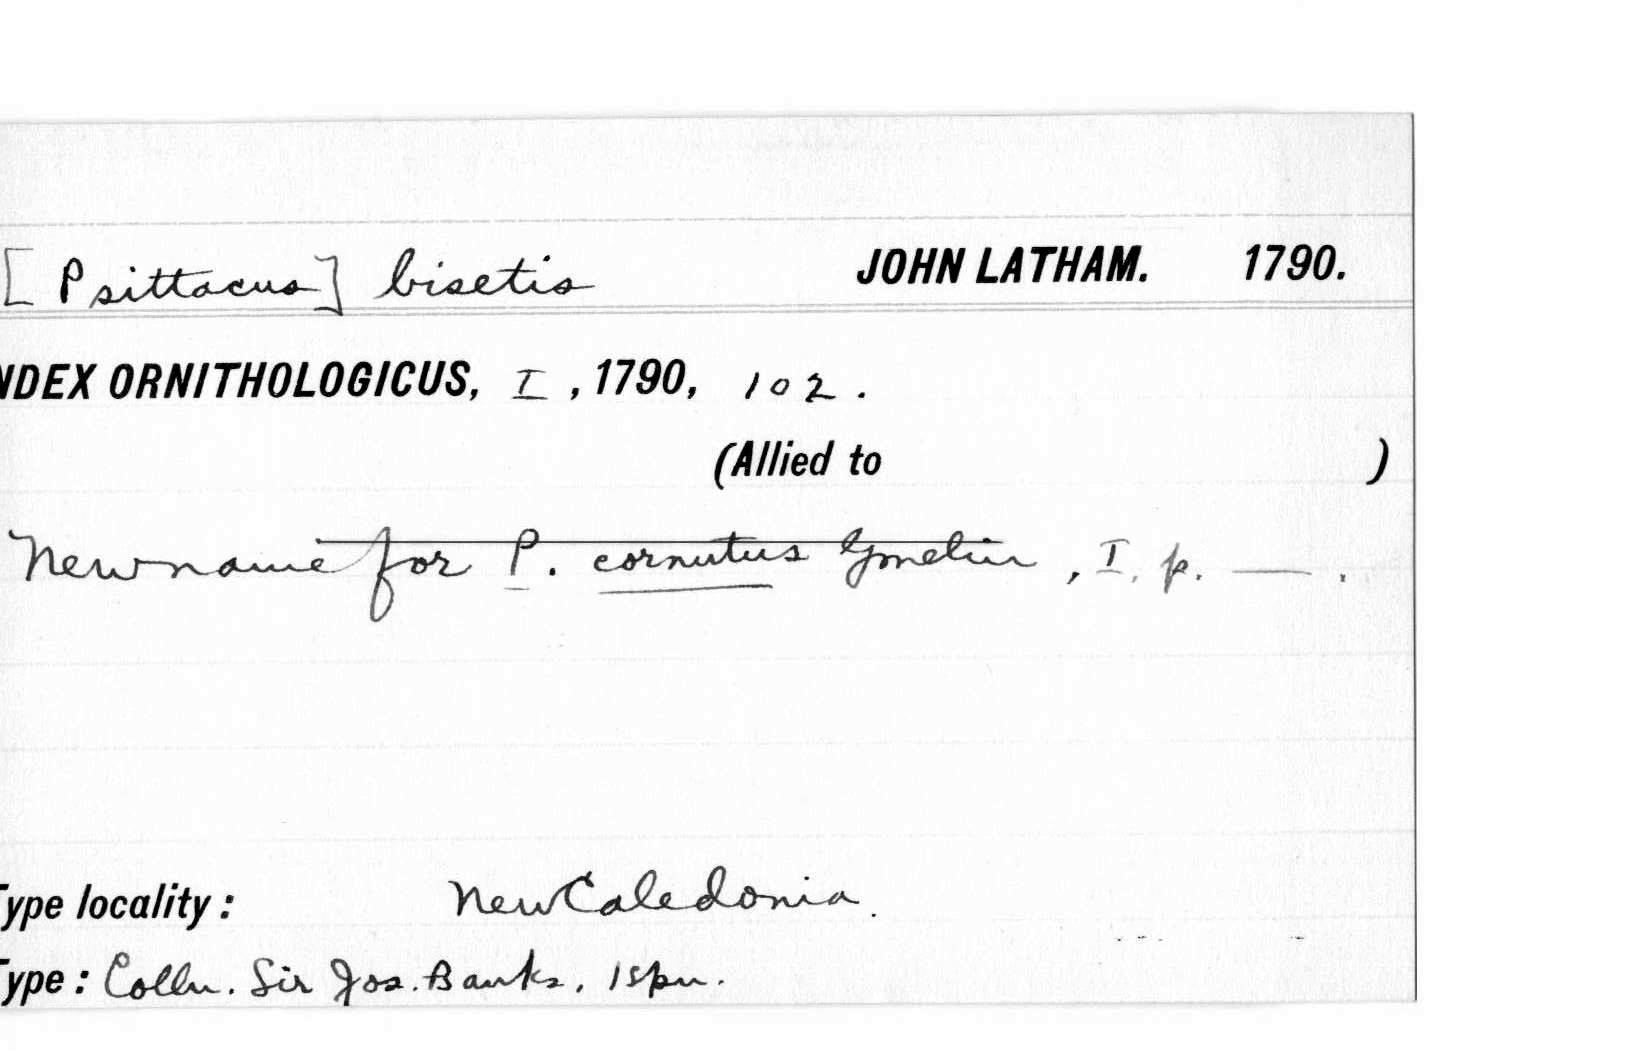 [Psittacus] bisetis JOHN LATHAM. 1790.
NDEX ORNITHOLOGICUS, I, 1790, 102.
(Allied to )
New name for P. cornutus Gmelin, I. p. —.
Type locality: New Caledonia.
Type: Colln. Sir Jos. Banks. 1 spn.